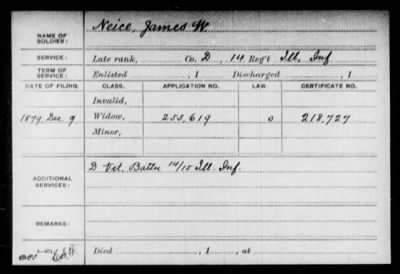 Neice, James W.
NAME OF SOLDIER:
SERVICE: Late rank, Co. D, 14 Reg't Ill. Inf
TERM OF SERVICE: Enlisted , 1 Discharged , 1
DATE OF FILING. CLASS. APPLICATION NO. LAW. CERTIFICATE NO.
Invalid,
1879 Dec 9 Widow, 255,619 0 218,727
Minor,
D Vet. Battn 14/15 Ill. Inf.
ADDITIONAL SERVICES:
REMARKS:
Died , 1 , at